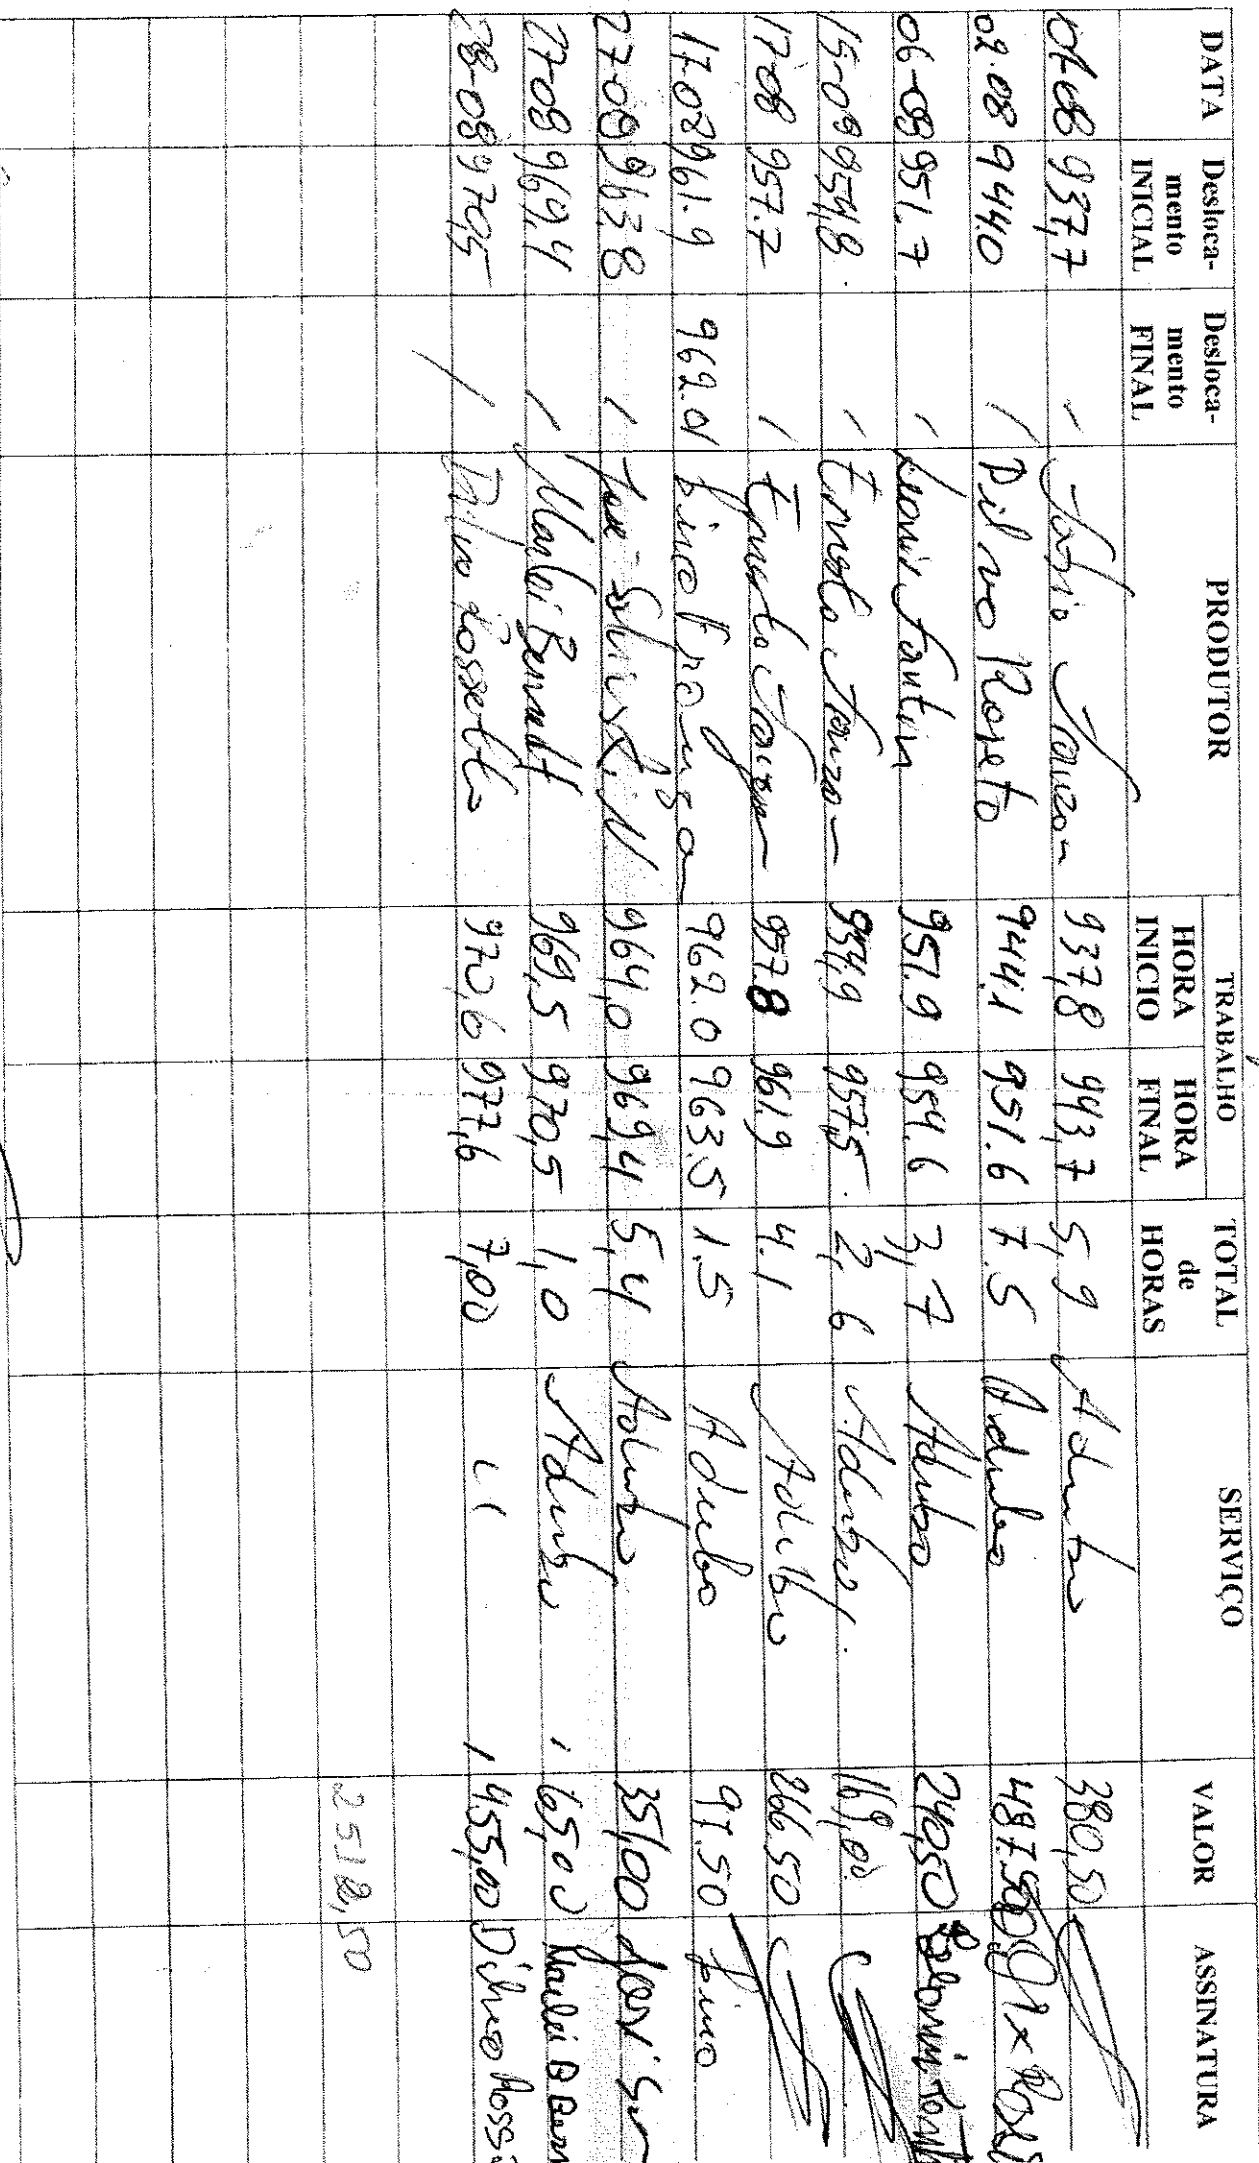 DATA Desloca-mento INICIAL Desloca-mento FINAL PRODUTOR TRABALHO HORA INICIO HORA FINAL TOTAL de HORAS SERVIÇO VALOR ASSINATURA
01-08 937,7 / 937,8 943,7 5,9 Adubo 380,50
02.08 944.0 / Dilvo Roseto 944,1 951.6 7.5 Adubo 487.50
06-08 951.7 / 951.9 954.6 3,7 Adubo 240,50
15-09 954,8. / Ernesto 954,9 957,5. 2,6 Adubo 169,00
17-08 957.7 / Ernesto 957.8 961.9 4.1 Adubo 266.50
17-08 961.9 962.0 962.0 963.5 1.5 Adubo 97.50
27-08 963.8 / José 964,0 969,4 5,4 Adubo 351,00
27-08 969,4 / Marlei 969,5 970,5 1,0 Adubo 65,00 Marlei B
28-08 970,5 / Dilvo Rossetto 970,6 977,6 7,00 " 455,00 Dilvo
2512,50